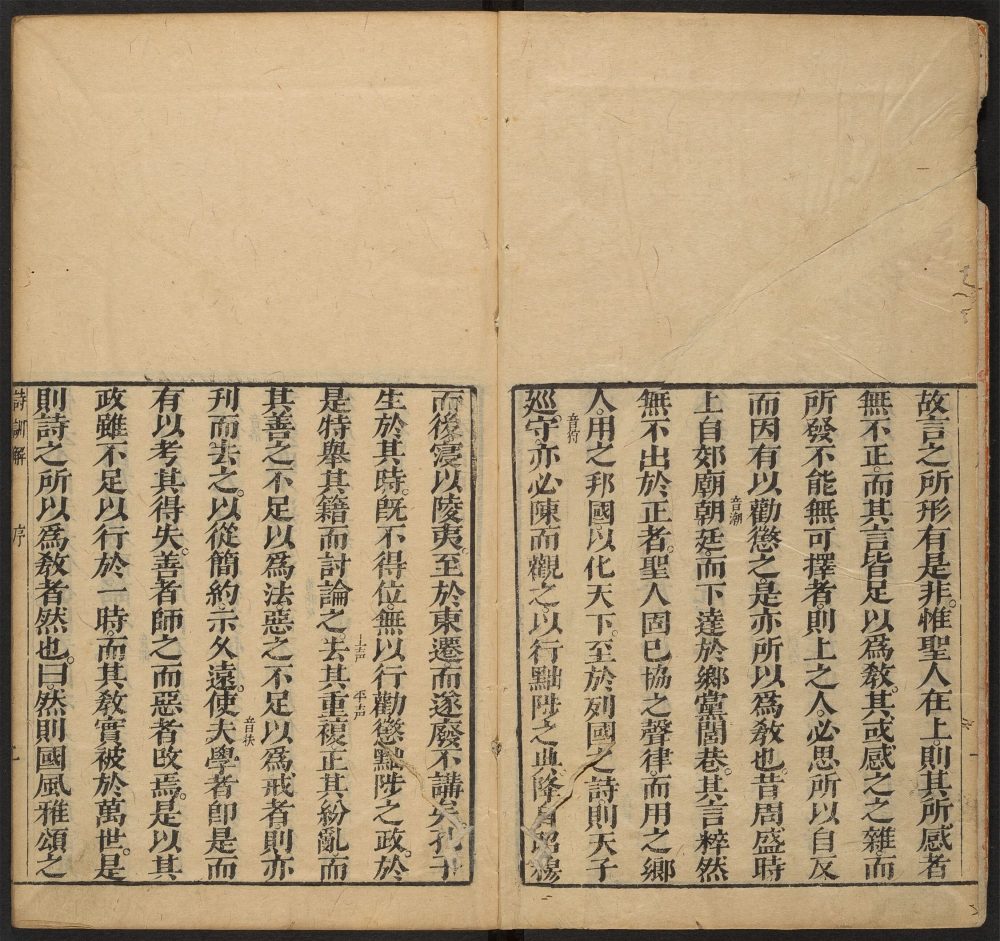 故言之所形有是非。惟聖人在上則其所感者
無不正。而其言皆足以爲敎。其或感之之雜而
所發不能無可擇者。則上之人必思所以自反
而因有以勸懲之。是亦所以爲敎也。昔周盛時
上自郊廟朝廷。而下達於鄉黨閭巷。其言粹然
音潮
無不出於正者。聖人固已協之聲律。而用之鄉
人。用之邦國。以化天下。至於列國之詩則天子
音狩
廵守。亦必陳而觀之。以行黜陟之典。降自昭穆
而後寖以陵夷。至於東遷而遂廢不講矣。孔子
生於其時。旣不得位。無以行勸懲黜陟之政。於
是特舉其籍而討論之。去其重複。正其紛亂。而
上声
平声
其善之不足以爲法惡之不足以爲戒者則亦
刊而去之。以從簡約示久遠。使夫學者卽是而
音扶
有以考其得失。善者師之而惡者攺焉。是以其
政雖不足以行於一時。而其敎實被於萬世。是
則詩之所以爲敎者然也。曰。然則國風雅頌之
詩訓解
序
一